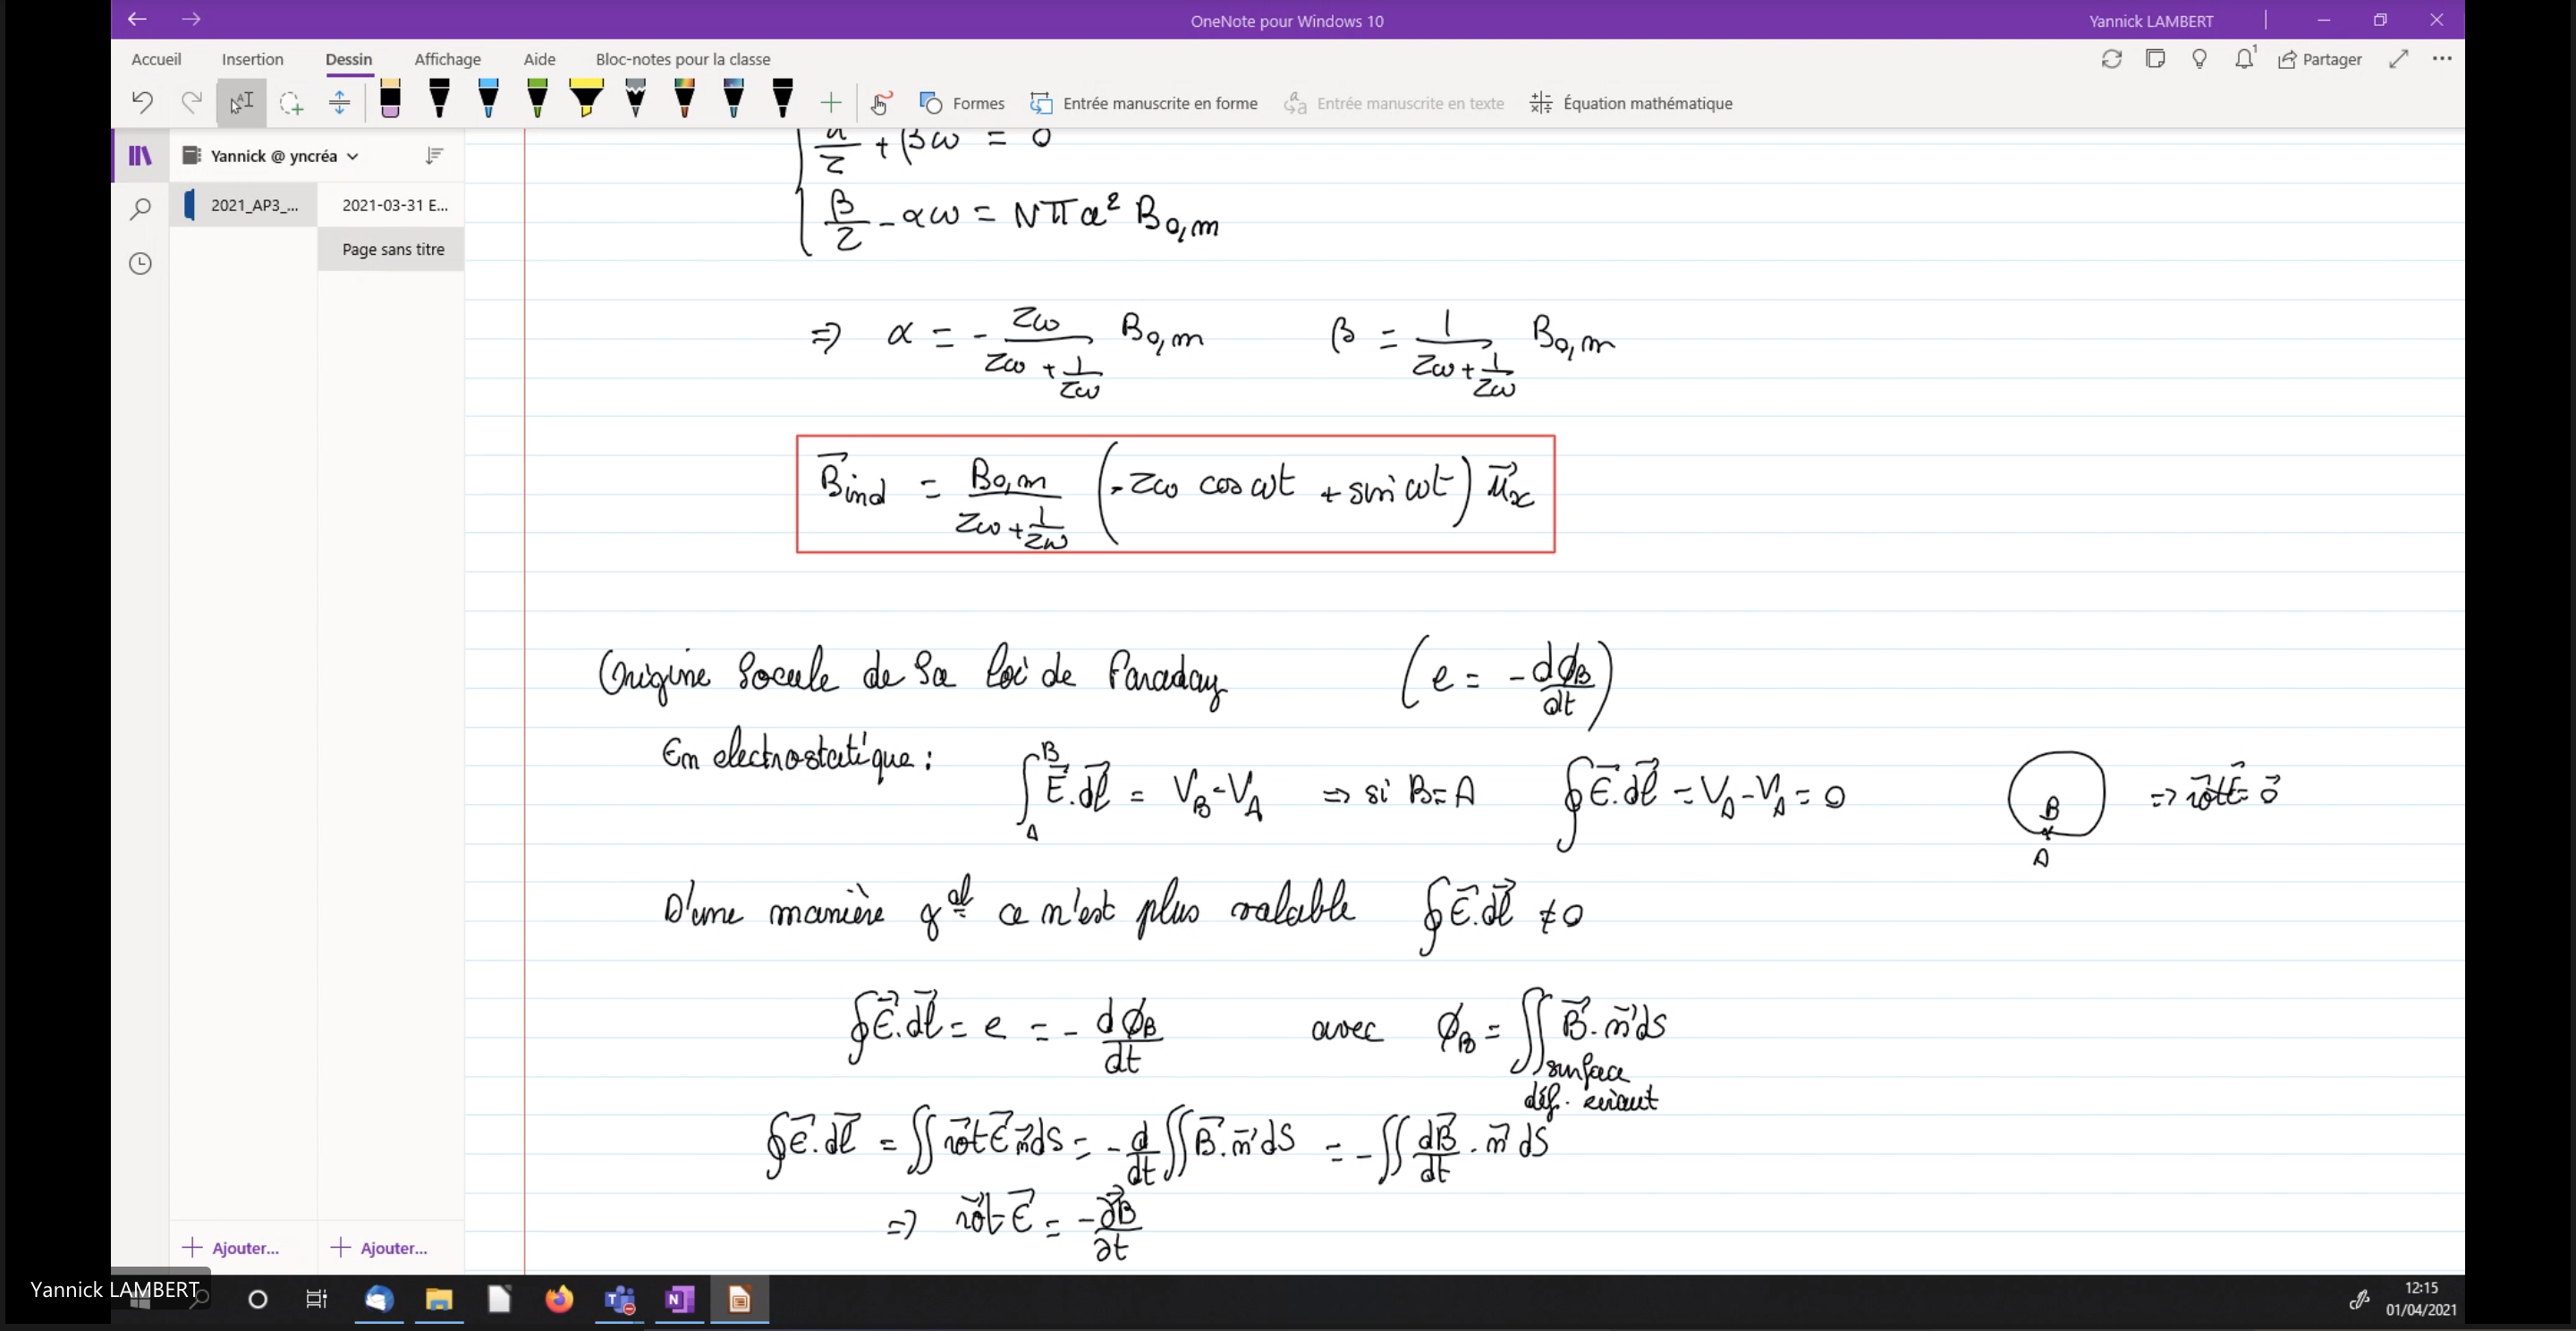 OneNote pour Windows 10
Yannick LAMBERT
Accueil Insertion Dessin Affichage Aide Bloc-notes pour la classe
Partager
Formes Entrée manuscrite en forme Entrée manuscrite en texte Équation mathématique
Yannick @ yncréa
2021_AP3_...
2021-03-31 E...
Page sans titre
α/τ + βω = 0
β/τ - αω = Nπa² B₀,m
⇒ α = - τω/(τω + 1/τω) B₀,m β = 1/(τω + 1/τω) B₀,m
B⃗ind = B₀,m/(τω + 1/τω) (-τω cos ωt + sin ωt) u⃗x
Origine locale de la loi de Faraday (e = - dϕB/dt)
En electrostatique : ∫_A^B E⃗.dl⃗ = V_B - V_A ⇒ si B = A ∮E⃗.dl⃗ = V_A - V_A = 0 B A ⇒ rot⃗E⃗ = 0⃗
D'une manière gal ce n'est plus valable ∮E⃗.dl⃗ ≠ 0
∮E⃗.dl⃗ = e = - dϕB/dt avec ϕB = ∬ B⃗.n⃗dS
surface
∮E⃗.dl⃗ = ∬ rot⃗E⃗ n⃗dS = - d/dt ∬ B⃗.n⃗dS = - ∬ dB⃗/dt . n⃗dS
⇒ rot⃗E⃗ = - ∂B⃗/∂t
Ajouter... Ajouter...
Yannick LAMBERT
12:15
01/04/2021